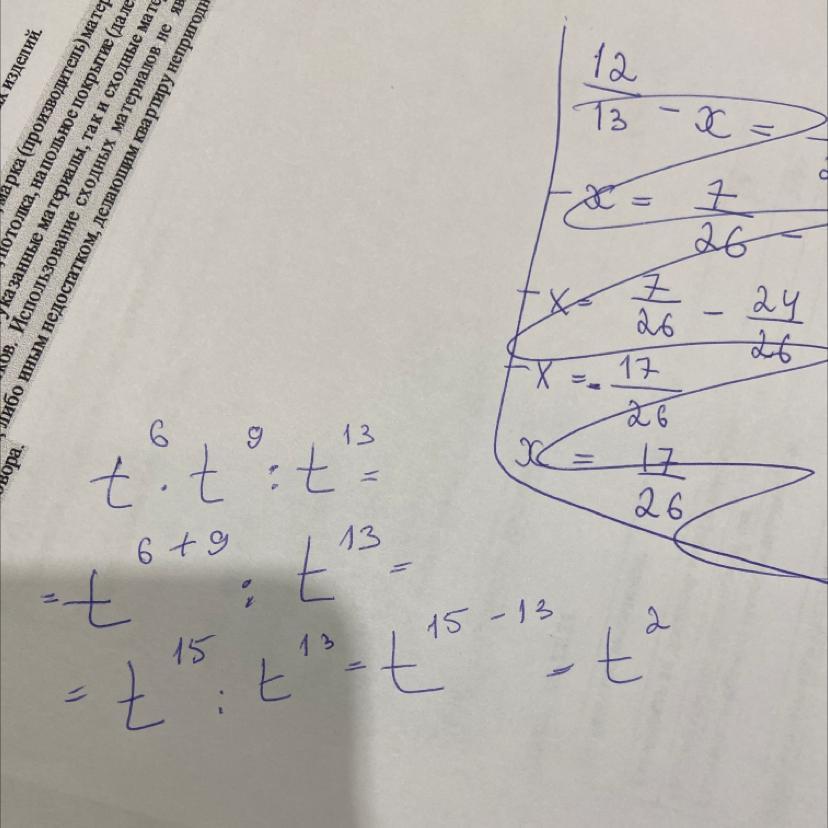 х изделий.
марка (производитель) матер
потолка, напольное покрытие (дале
указанные материалы, так и сходные мате
ков. Использование сходных материалов не яв
либо иным недостатком, делающим квартиру непригодн
овора.
12/13 - x =
- x = 7/26 -
- x = 7/26 - 24/26
- x = - 17/26
x = 17/26
t⁶ · t⁹ : t¹³ =
= t⁶⁺⁹ : t¹³ =
= t¹⁵ : t¹³ = t¹⁵⁻¹³ = t²